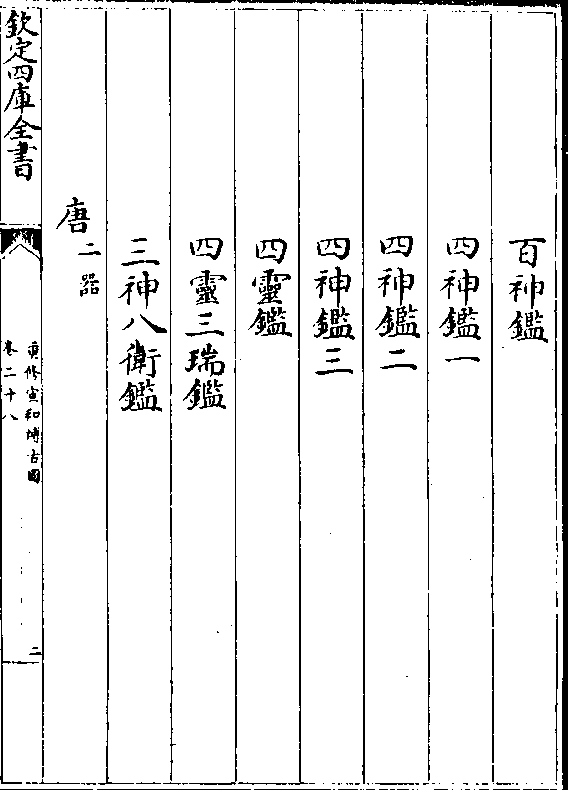 百神鑑
四神鑑一
四神鑑二
四神鑑三
四靈鑑
四靈三瑞鑑
三神八衛鑑
唐二器
欽定四庫全書
重修宣和博古圖
卷二十八
二